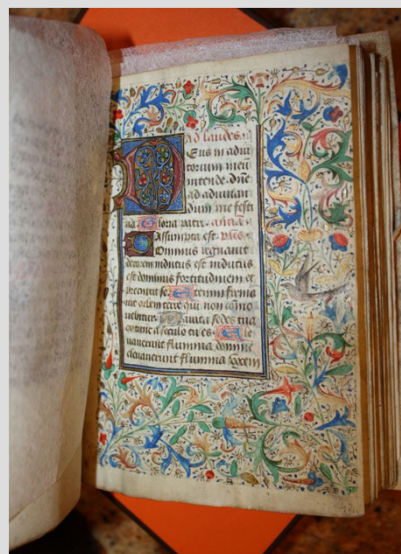 Ad laudes.
Eus in adiu
torium meū
intende. dn̄e
ad adiuuan
dum me festi
na Gloria patri. antiā
Assumpta est. p̄us.
Ominus regnauit
decorem indutus est indutus
est dominus fortitudinem et
precinxit se. Et enim firma
uit orbem terre qui non cōmo
uebitur. Parata sedes tua
ex tunc a seculo tu es. Ele
uauerunt flumina domine
eleuauerunt flumina vocem